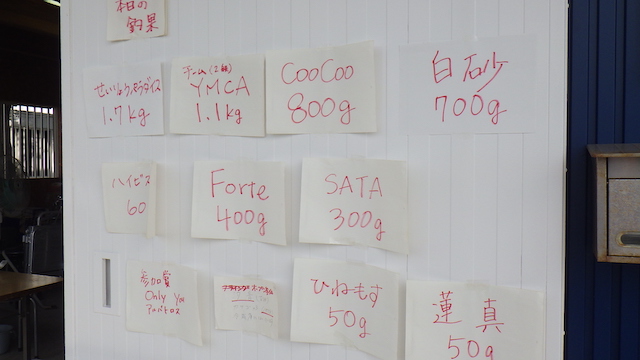 本日の
釣果
せいしょうパラダイス
1.7kg
チーム(2組)
YMCA
1.1kg
CooCoo
800g
白砂
700g
ハイビス
60
Forte
400g
SATA
300g
参加賞
Only You
アルバトロス
ひねもす
50g
蓮真
50g